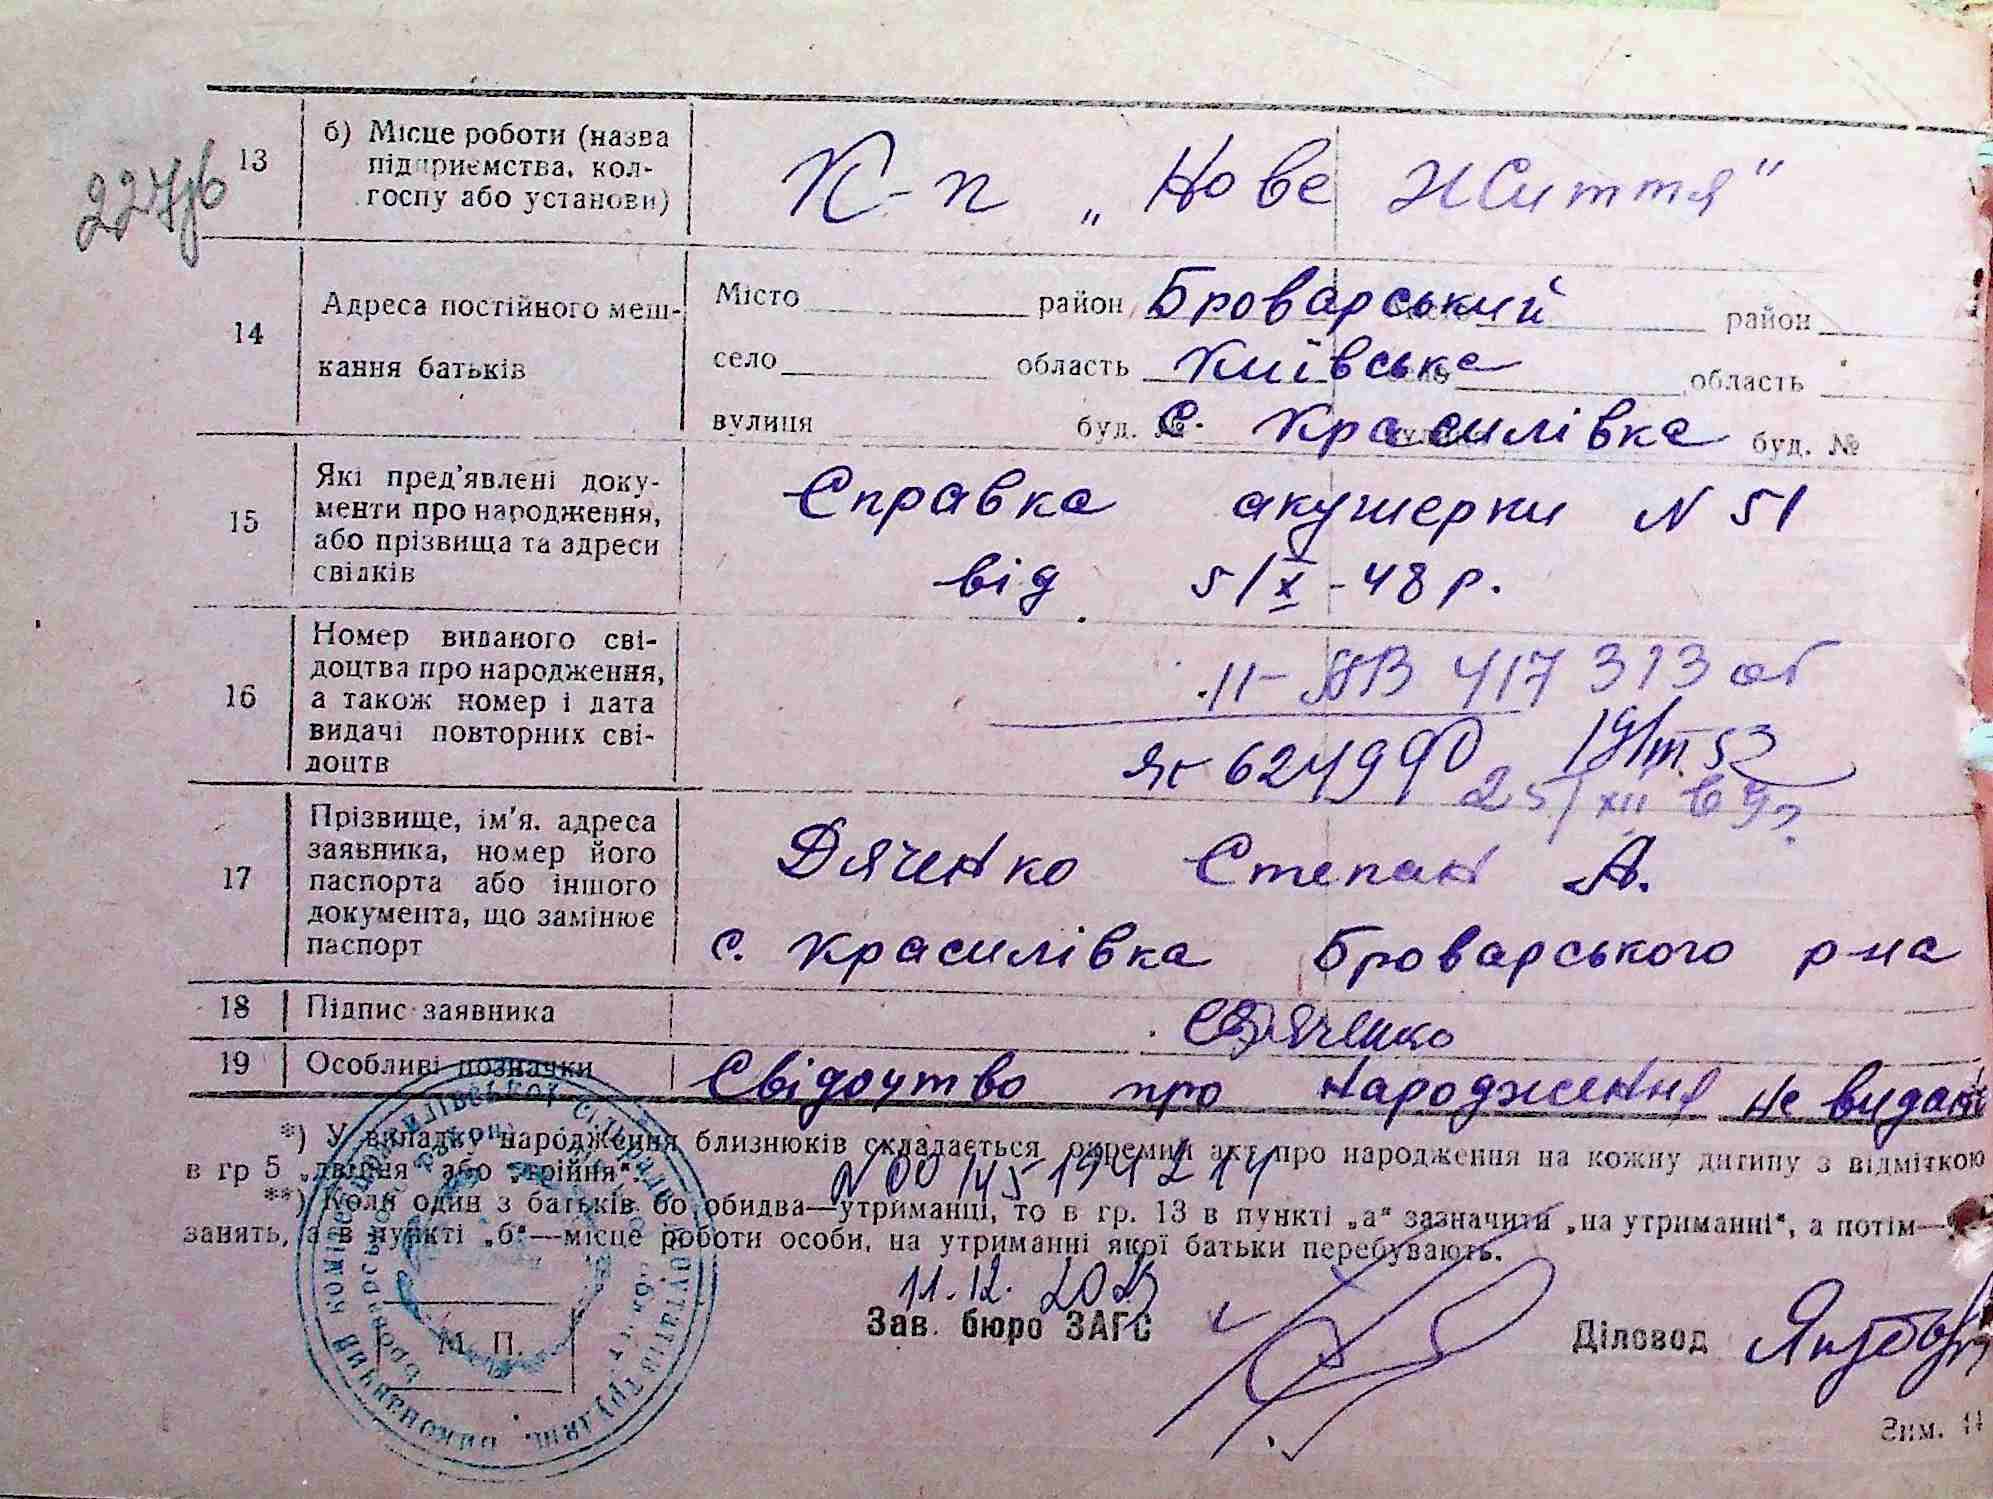 227/в
13 б) Місце роботи (назва
підприємства, кол-
госпу або установи)
К-п „Нове Життя"
14 Адреса постійного меш-
кання батьків
Місто район Броварський район
село область Київська область
вулиця буд. № с. Красилівка буд. №
15 Які пред'явлені доку-
менти про народження,
або прізвища та адреси
свідків
Справка акушерки N 51
від 5/X-48 р.
16 Номер виданого сві-
доцтва про народження,
а також номер і дата
видачі повторних сві-
доцтв
417 313 от
19/III 53
624990
25/XII
17 Прізвище, ім'я, адреса
заявника, номер його
паспорта або іншого
документа, що замінює
паспорт
Дяченко Степан А.
с. Красилівка Броварського р-на
18 Підпис заявника
СДяченко
19 Особливі позначки
Свідоцтво про народження не видан
*) У випадку народження близнюків складається окремий акт про народження на кожну дитину з відміткою
в гр 5 „двійня" або „трійня".
N00145194214
**) Коли один з батьків бо обидва—утриманці, то в гр. 13 в пункті „а" зазначити „на утриманні", а потім—
занять, а в пункті „б"—місце роботи особи, на утриманні якої батьки перебувають.
11.12.
Зав. бюро ЗАГС
Діловод
М. П.